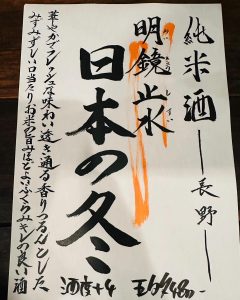 純米酒 ― 長野 ―
明鏡止水
めいきょうしすい
日本の冬
華やかでフレッシュな味わい透き通る香りつるんとした
みずみずしい口当たりお米の旨みほどよいふくらみキレの良い酒
酒度+4